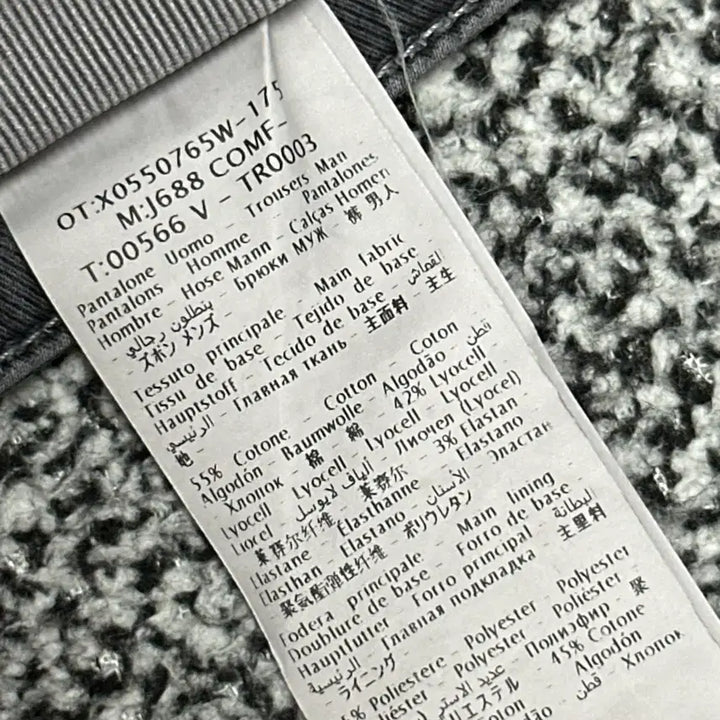 OT:X0550765W-175
M:J688 COMF-
T:00566 V - TR0003
Pantalone Uomo - Trousers Man -
Pantalons Homme - Pantalones
Hombre - Hose Mann - Calças Homem
- بنطلون رجالي - Брюки МУЖ - 裤 男人
- ズボン メンズ -
Tessuto principale - Main fabric
Tissu de base - Tejido de base
Hauptstoff - Tecido de base - القماش
الرئيسي - Главная ткань - 主面料 - 主生
地 -
55% Cotone - Cotton - Coton
Algodón - Baumwolle - Algodão - قطن
Хлопок - 棉 - 綿 - 42% Lyocell
Lyocell - Lyocell - Lyocell - Lyocell
Liocel - ألياف لايوسيل - Лиочел (Lyocel)
莱赛尔纤维 - 莱赛尔 - 3% Elastan
Elastane - Élasthanne - Elastano
Elasthan - Elastano - الاستان - Эластан
聚氨酯弹性纤维 - ポリウレタン
Fodera principale - Main lining
Doublure de base - Forro de base
Hauptfutter - Forro principal - البطانة
الرئيسية - Главная подкладка - 主里料
- ライニング -
5% Poliestere - Polyester - Polyester
Polyester - Polyester - Poliéster
عديد الاستر - Полиэфир - 聚
リエステル - 45% Cotone
Algodón
قطن - Хлопок